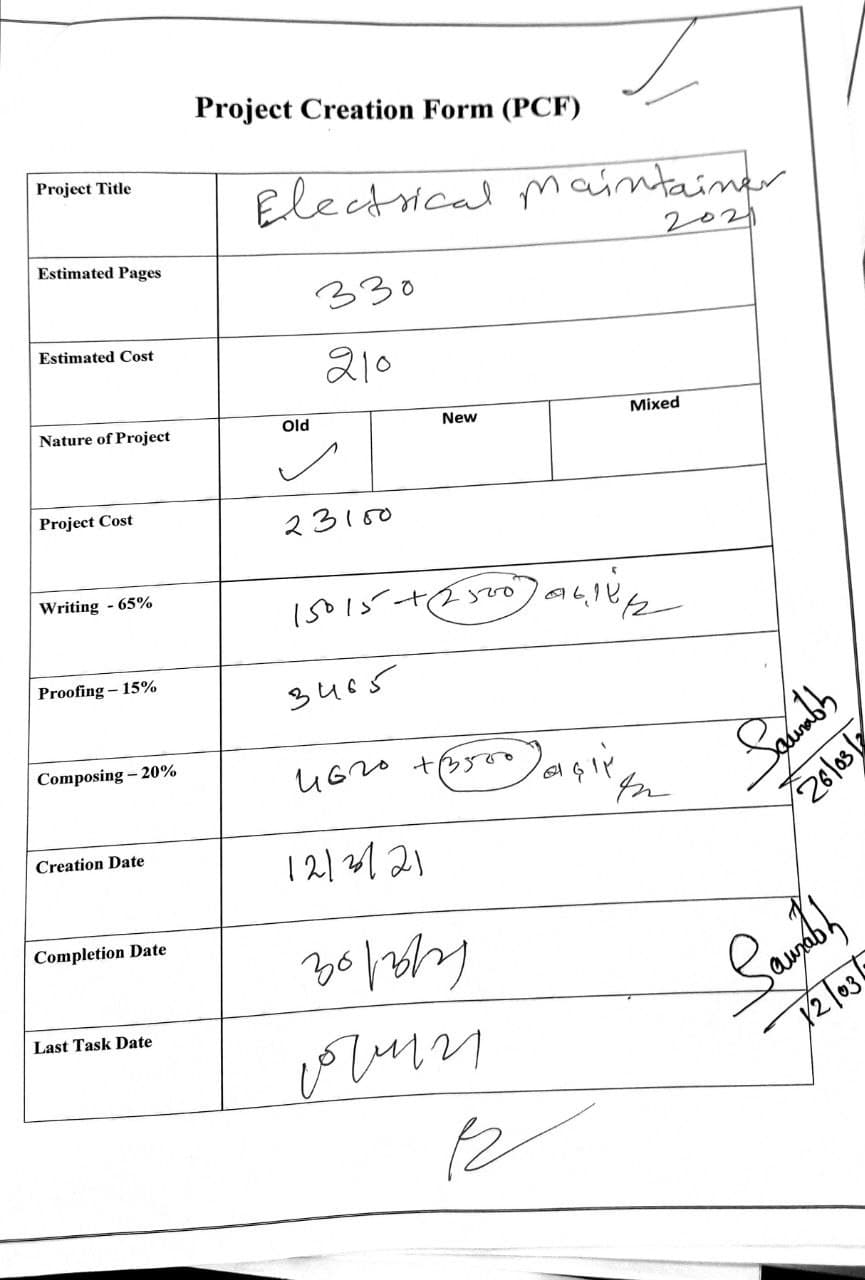 Project Creation Form (PCF)
Project Title Electrical Maintainer
2021
Estimated Pages 330
Estimated Cost 210
Nature of Project Old New Mixed
Project Cost 23100
Writing - 65% 15015 + 2500
Proofing – 15% 3465
Composing – 20% 4620 + 3500
Saurabh
26/03/
Creation Date 12/3/21
Completion Date 30/3/21
Saurabh
12/03/
Last Task Date